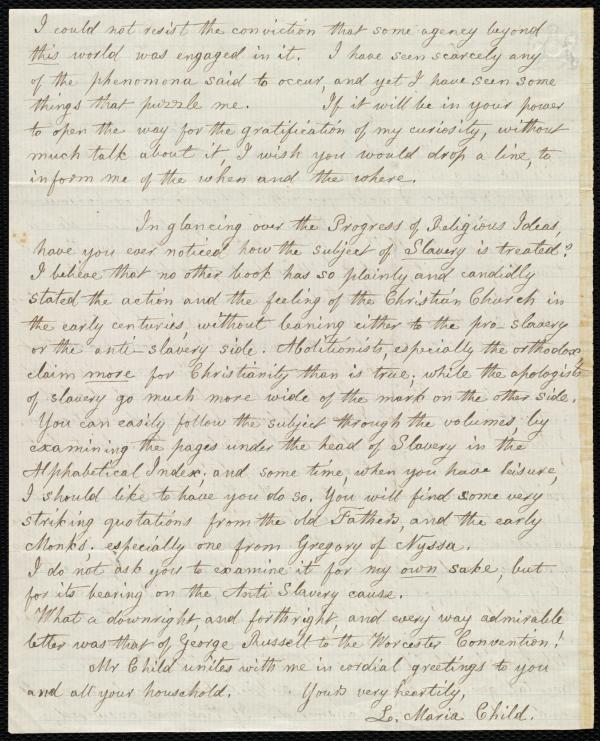 I could not resist the conviction that some agency beyond
this world was engaged in it. I have seen scarcely any
of the phenomona said to occur, and yet I have seen some
things that puzzle me. If it will be in your power
to open the way for the gratification of my curiosity, without
much talk about it, I wish you would drop a line, to
inform me of the when and the where.
In glancing over the Progress of Religious Ideas,
have you ever noticed how the subject of Slavery is treated?
I believe that no other book has so plainly and candidly
stated the action and the feeling of the Christian Church in
the early centuries, without leaning either to the pro-slavery
or the anti-slavery side. Abolitionists, especially the orthodox
claim more for Christianity than is true; while the apologists
of slavery go much more wide of the mark on the other side.
You can easily follow the subject through the volumes, by
examining the pages under the head of Slavery in the
Alphabetical Index; and some time, when you have leisure,
I should like to have you do so. You will find some very
striking quotations from the old Fathers, and the early
Monks; especially one from Gregory of Nyssa.
I do not ask you to examine it for my own sake, but
for its bearing on the Anti Slavery cause.
What a downright and forthright, and every way admirable
letter was that of George Russell to the Worcester Convention!
Mr Child unites with me in cordial greetings to you
and all your household. Yours very heartily,
L. Maria Child.